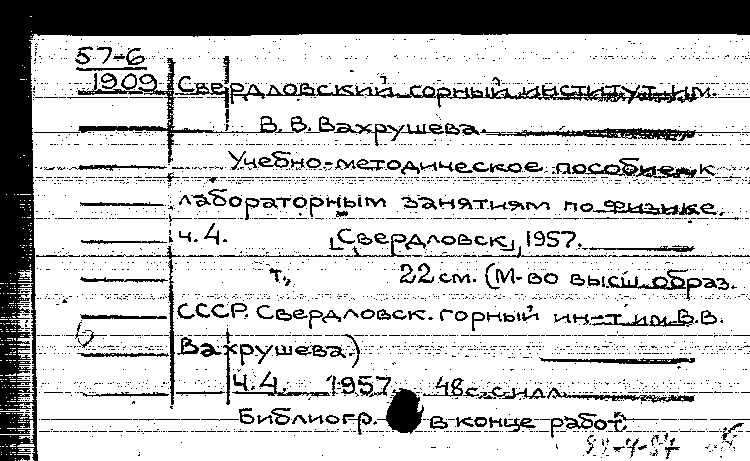 57-6
1909
Свердловский горный институт им.
В. В. Вахрушева.
Учебно-методическое пособие к
лабораторным занятиям по физике.
ч. 4. [Свердловск], 1957.
т., 22 см. (М-во высш. образ.
СССР. Свердловск. горный ин-т им. В.В.
Вахрушева.)
Ч. 4. 1957. 48 с. с илл.
Библиогр. в конце работ.